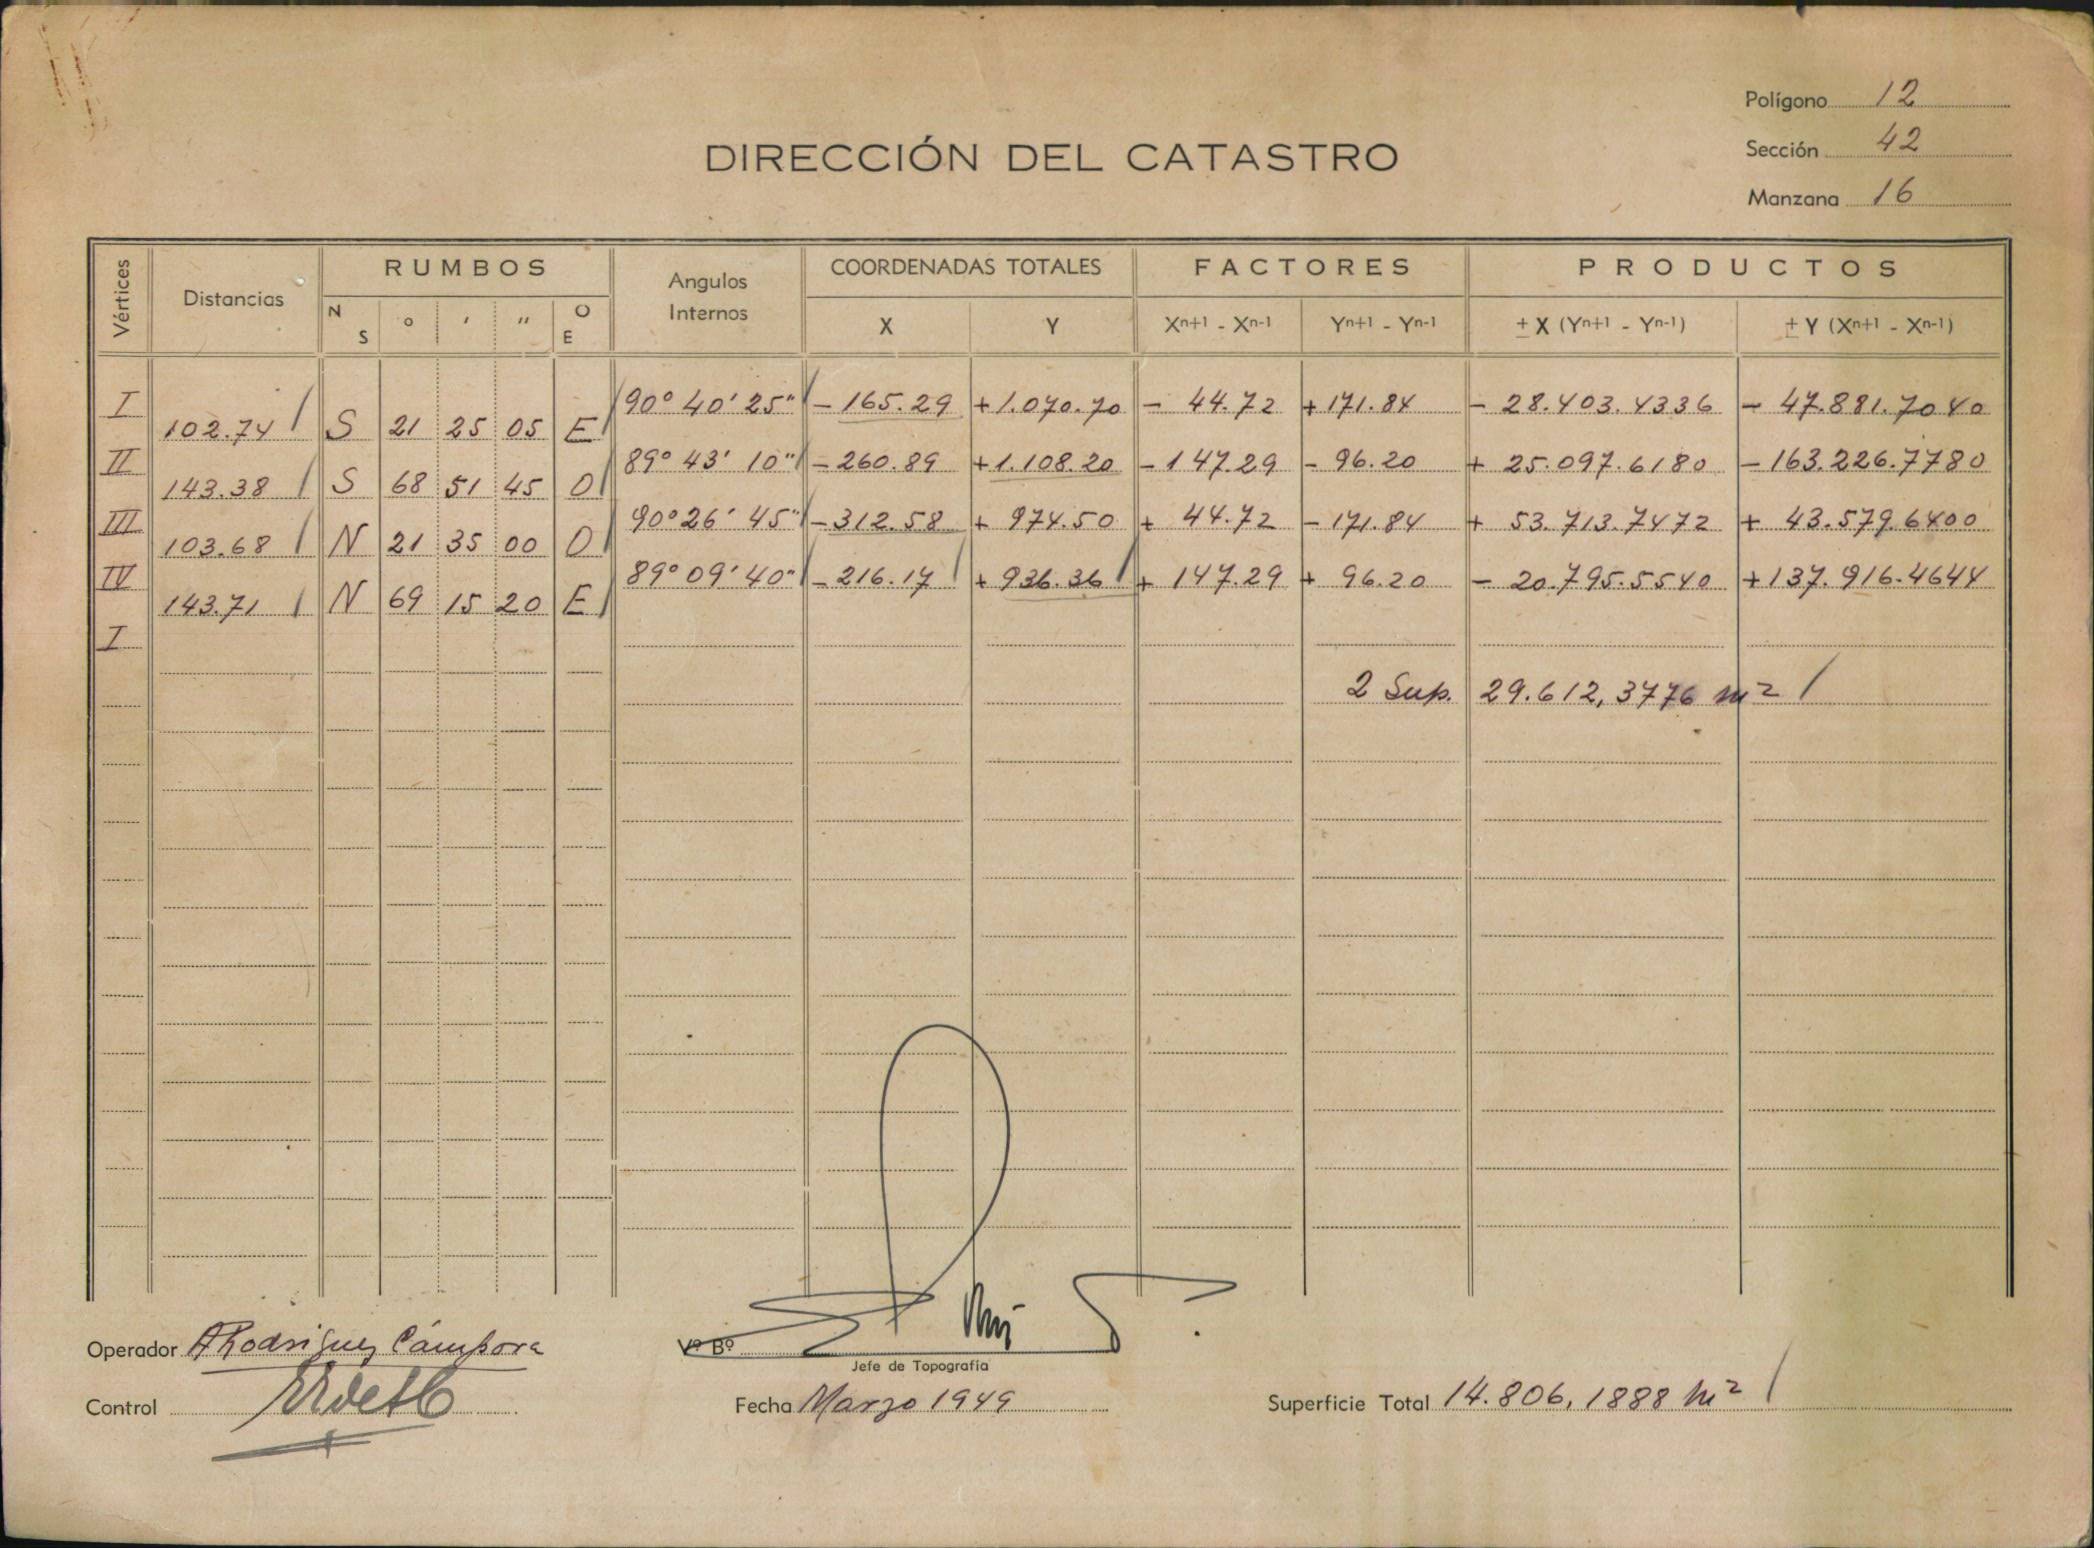 Polígono 12
Sección 42
Manzana 16
DIRECCIÓN DEL CATASTRO
Vértices Distancias RUMBOS Angulos Internos COORDENADAS TOTALES FACTORES PRODUCTOS
N S ° ′ ″ O E X Y Xn+1 - Xn-1 Yn+1 - Yn-1 ± X (Yn+1 - Yn-1) ± Y (Xn+1 - Xn-1)
I 90° 40' 25" - 165.29 +1.070.70 - 44.72 +171.84 - 28.403.4336 - 47.881.7040
102.74 S 21 25 05 E
II 89° 43' 10" - 260.89 +1.108.20 - 147.29 - 96.20 + 25.097.6180 - 163.226.7780
143.38 S 68 51 45 O
III 90° 26' 45" - 312.58 + 974.50 + 44.72 - 171.84 + 53.713.7472 + 43.579.6400
103.68 N 21 35 00 O
IV 89° 09' 40" - 216.17 + 936.36 + 147.29 + 96.20 - 20.795.5540 +137.916.4644
143.71 N 69 15 20 E
I
2 Sup. 29.612,3776 m²
Operador ARodriguez Cámpora
Vº Bº
Jefe de Topografía
Control
Fecha Marzo 1949
Superficie Total 14.806,1888 m²